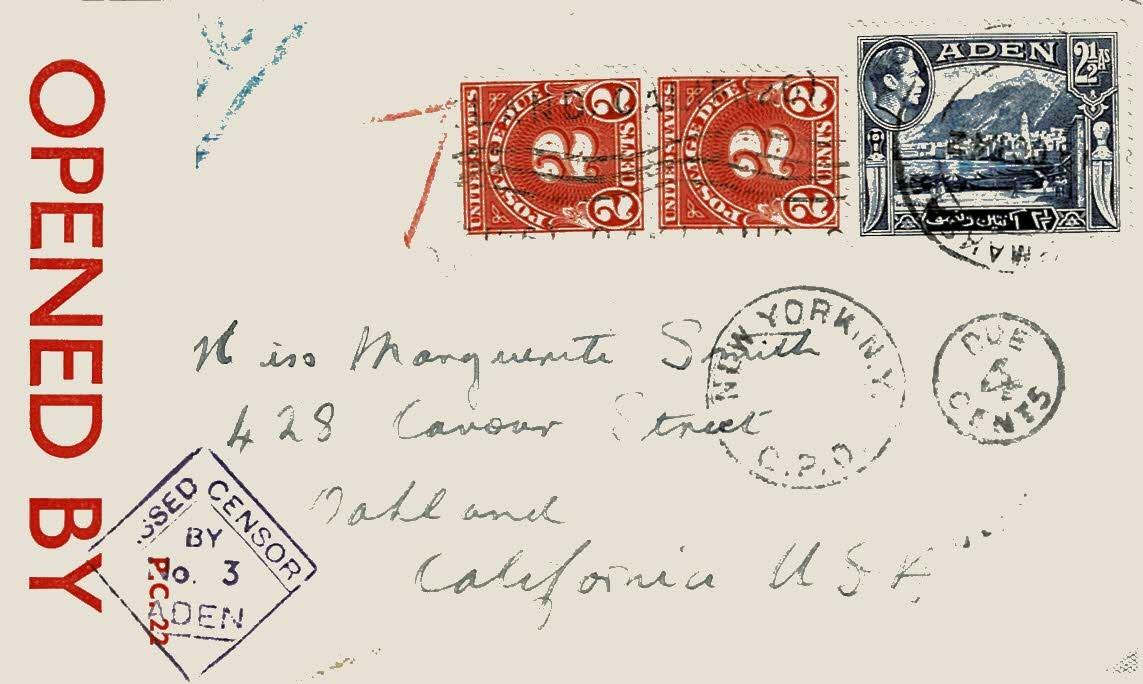 OPENED BY
P.C. 22
SSED CENSOR
BY
No. 3
ADEN
UNITED STATES
POSTAGE DUE
2 CENTS 2
2
UNITED STATES
POSTAGE DUE
2 CENTS 2
2
ADEN
2½ AS
NEW YORK, N.Y.
G.P.O.
DUE
4
CENTS
Miss Marguerite Smith
428 Cavour Street
Oakland
California USA